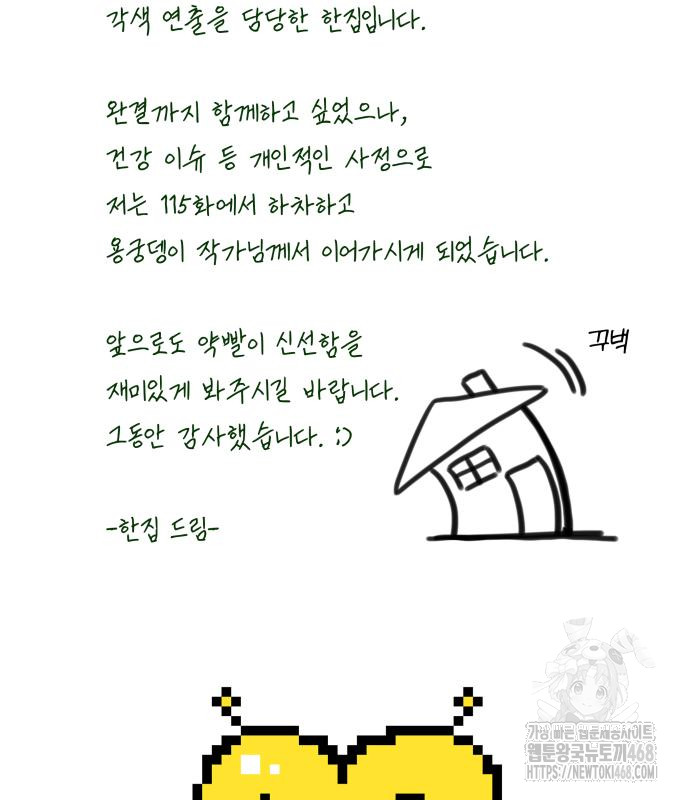 각색 연출을 담당한 한집입니다.
완결까지 함께하고 싶었으나,
건강 이슈 등 개인적인 사정으로
저는 115화에서 하차하고
용궁뎅이 작가님께서 이어가시게 되었습니다.
꾸벅
앞으로도 약빨이 신선함을
재미있게 봐주시길 바랍니다.
그동안 감사했습니다. :)
-한집 드림-
가장 빠른 웹툰제공사이트
웹툰왕국뉴토끼468
HTTPS://NEWTOKI468.COM